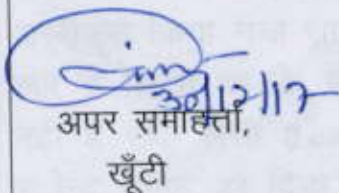 30/12/17
अपर समाहर्त्ता,
खूँटी